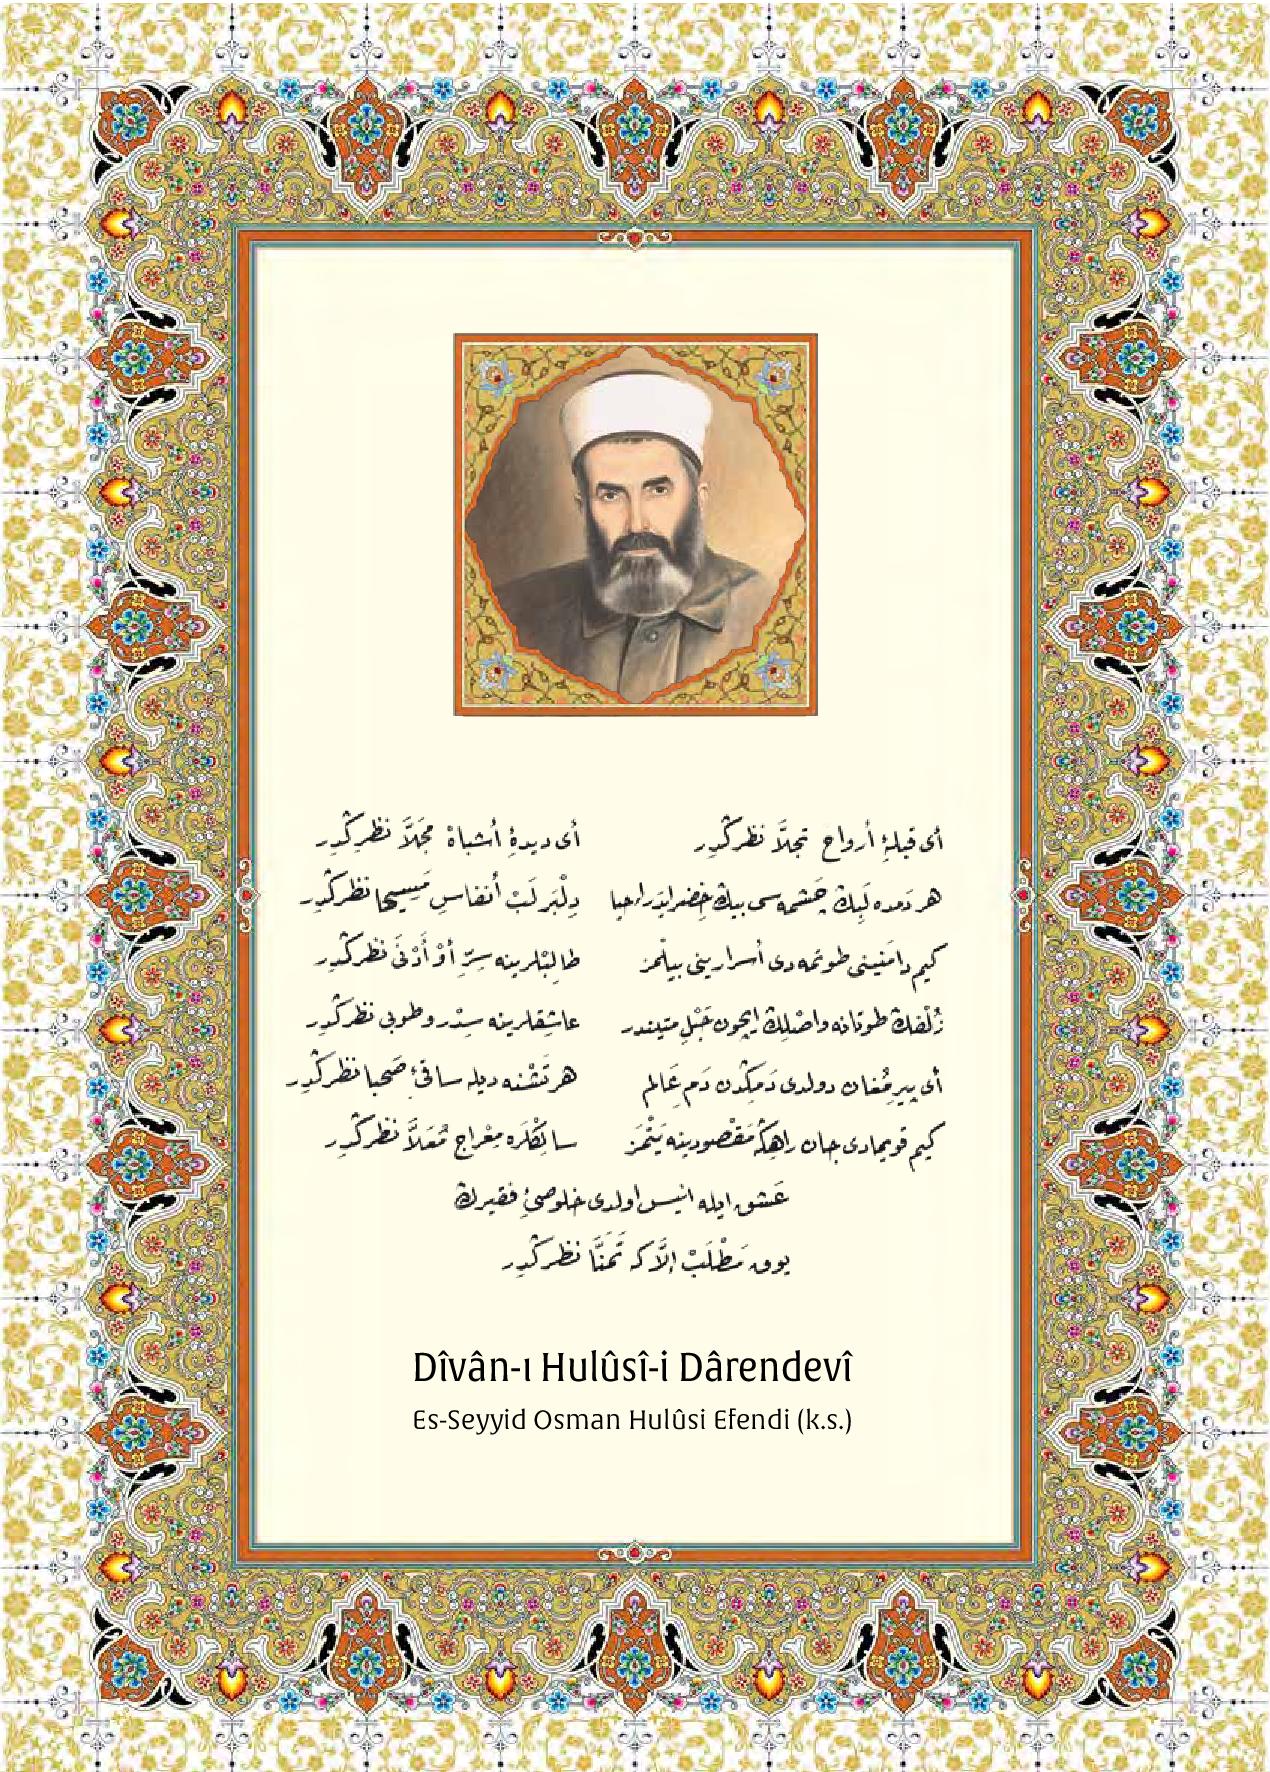 أى قبلۀ أرواح تجلاّ نظرڭدر أى ديدۀ أشباه مجلاّ نظرڭدر
هر دمده لبڭ چشمه‌سى بيڭ خضر ايدر احيا دلبر لب أنفاس مسيحا نظرڭدر
كيم دامنينى طوتمه‌دى أسرارينى بيلمز طالبلرينه سرّ أو أدنى نظرڭدر
زلفڭ طوتانه واصلڭ ايچون حبل متيندر عاشقلرينه سدر و طوبى نظرڭدر
أى پير مغان دولدى دمڭدن دم عالم هر تشنه ديله ساقئ صهبا نظرڭدر
كيم قويمادى جان راهڭه مقصودينه يتمز سالكلره معراج معلاّ نظرڭدر
عشق ايله انيس اولدى خلوصئ فقيرڭ
يوق مطلب إلاّ كه تمنّا نظرڭدر
Dîvân-ı Hulûsî-i Dârendevî
Es-Seyyid Osman Hulûsi Efendi (k.s.)